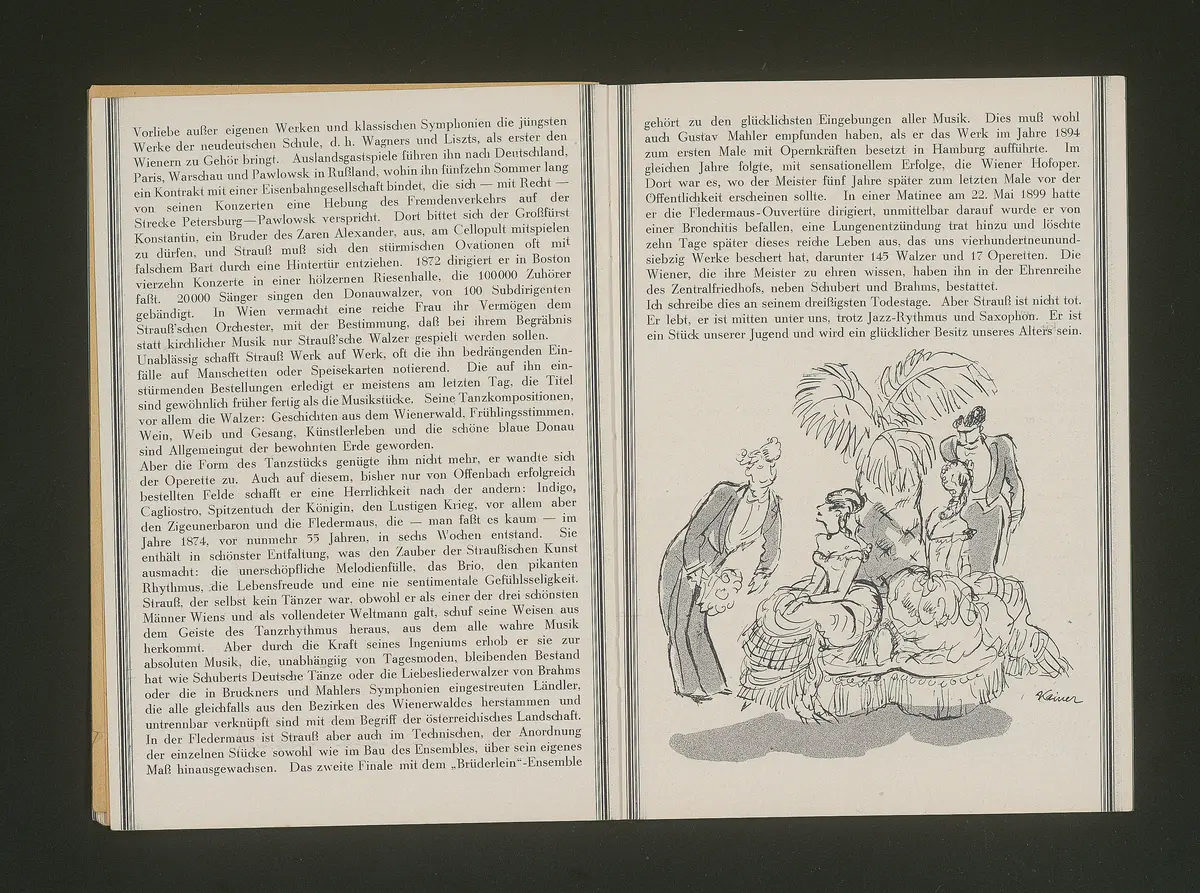 Vorliebe außer eigenen Werken und klassischen Symphonien die jüngsten
Werke der neudeutschen Schule, d. h. Wagners und Liszts, als erster den
Wienern zu Gehör bringt. Auslandsgastspiele führen ihn nach Deutschland,
Paris, Warschau und Pawlowsk in Rußland, wohin ihn fünfzehn Sommer lang
ein Kontrakt mit einer Eisenbahngesellschaft bindet, die sich — mit Recht —
von seinen Konzerten eine Hebung des Fremdenverkehrs auf der
Strecke Petersburg—Pawlowsk verspricht. Dort bittet sich der Großfürst
Konstantin, ein Bruder des Zaren Alexander, aus, am Cellopult mitspielen
zu dürfen, und Strauß muß sich den stürmischen Ovationen oft mit
falschem Bart durch eine Hintertür entziehen. 1872 dirigiert er in Boston
vierzehn Konzerte in einer hölzernen Riesenhalle, die 100000 Zuhörer
faßt. 20000 Sänger singen den Donauwalzer, von 100 Subdirigenten
gebändigt. In Wien vermacht eine reiche Frau ihr Vermögen dem
Strauß'schen Orchester, mit der Bestimmung, daß bei ihrem Begräbnis
statt kirchlicher Musik nur Strauß'sche Walzer gespielt werden sollen.
Unablässig schafft Strauß Werk auf Werk, oft die ihn bedrängenden Ein-
fälle auf Manschetten oder Speisekarten notierend. Die auf ihn ein-
stürmenden Bestellungen erledigt er meistens am letzten Tag, die Titel
sind gewöhnlich früher fertig als die Musikstücke. Seine Tanzkompositionen,
vor allem die Walzer: Geschichten aus dem Wienerwald, Frühlingsstimmen,
Wein, Weib und Gesang, Künstlerleben und die schöne blaue Donau
sind Allgemeingut der bewohnten Erde geworden.
Aber die Form des Tanzstücks genügte ihm nicht mehr, er wandte sich
der Operette zu. Auch auf diesem, bisher nur von Offenbach erfolgreich
bestellten Felde schafft er eine Herrlichkeit nach der andern: Indigo,
Cagliostro, Spitzentuch der Königin, den Lustigen Krieg, vor allem aber
den Zigeunerbaron und die Fledermaus, die — man faßt es kaum — im
Jahre 1874, vor nunmehr 55 Jahren, in sechs Wochen entstand. Sie
enthält in schönster Entfaltung, was den Zauber der Straußischen Kunst
ausmacht: die unerschöpfliche Melodienfülle, das Brio, den pikanten
Rhythmus, die Lebensfreude und eine nie sentimentale Gefühlsseligkeit.
Strauß, der selbst kein Tänzer war, obwohl er als einer der drei schönsten
Männer Wiens und als vollendeter Weltmann galt, schuf seine Weisen aus
dem Geiste des Tanzrhythmus heraus, aus dem alle wahre Musik
herkommt. Aber durch die Kraft seines Ingeniums erhob er sie zur
absoluten Musik, die, unabhängiig von Tagesmoden, bleibenden Bestand
hat wie Schuberts Deutsche Tänze oder die Liebesliederwalzer von Brahms
oder die in Bruckners und Mahlers Symphonien eingestreuten Ländler,
die alle gleichfalls aus den Bezirken des Wienerwaldes herstammen und
untrennbar verknüpft sind mit dem Begriff der österreichisches Landschaft.
In der Fledermaus ist Strauß aber auch im Technischen, der Anordnung
der einzelnen Stücke sowohl wie im Bau des Ensembles, über sein eigenes
Maß hinausgewachsen. Das zweite Finale mit dem „Brüderlein“-Ensemble
gehört zu den glücklichsten Eingebungen aller Musik. Dies muß wohl
auch Gustav Mahler empfunden haben, als er das Werk im Jahre 1894
zum ersten Male mit Opernkräften besetzt in Hamburg aufführte. Im
gleichen Jahre folgte, mit sensationellem Erfolge, die Wiener Hofoper.
Dort war es, wo der Meister fünf Jahre später zum letzten Male vor der
Öffentlichkeit erscheinen sollte. In einer Matinee am 22. Mai 1899 hatte
er die Fledermaus-Ouvertüre dirigiert, unmittelbar darauf wurde er von
einer Bronchitis befallen, eine Lungenentzündung trat hinzu und löschte
zehn Tage später dieses reiche Leben aus, das uns vierhundertneunund-
siebzig Werke beschert hat, darunter 145 Walzer und 17 Operetten. Die
Wiener, die ihre Meister zu ehren wissen, haben ihn in der Ehrenreihe
des Zentralfriedhofs, neben Schubert und Brahms, bestattet.
Ich schreibe dies an seinem dreißigsten Todestage. Aber Strauß ist nicht tot.
Er lebt, er ist mitten unter uns, trotz Jazz-Rythmus und Saxophon. Er ist
ein Stück unserer Jugend und wird ein glücklicher Besitz unseres Alters sein.
Kainer